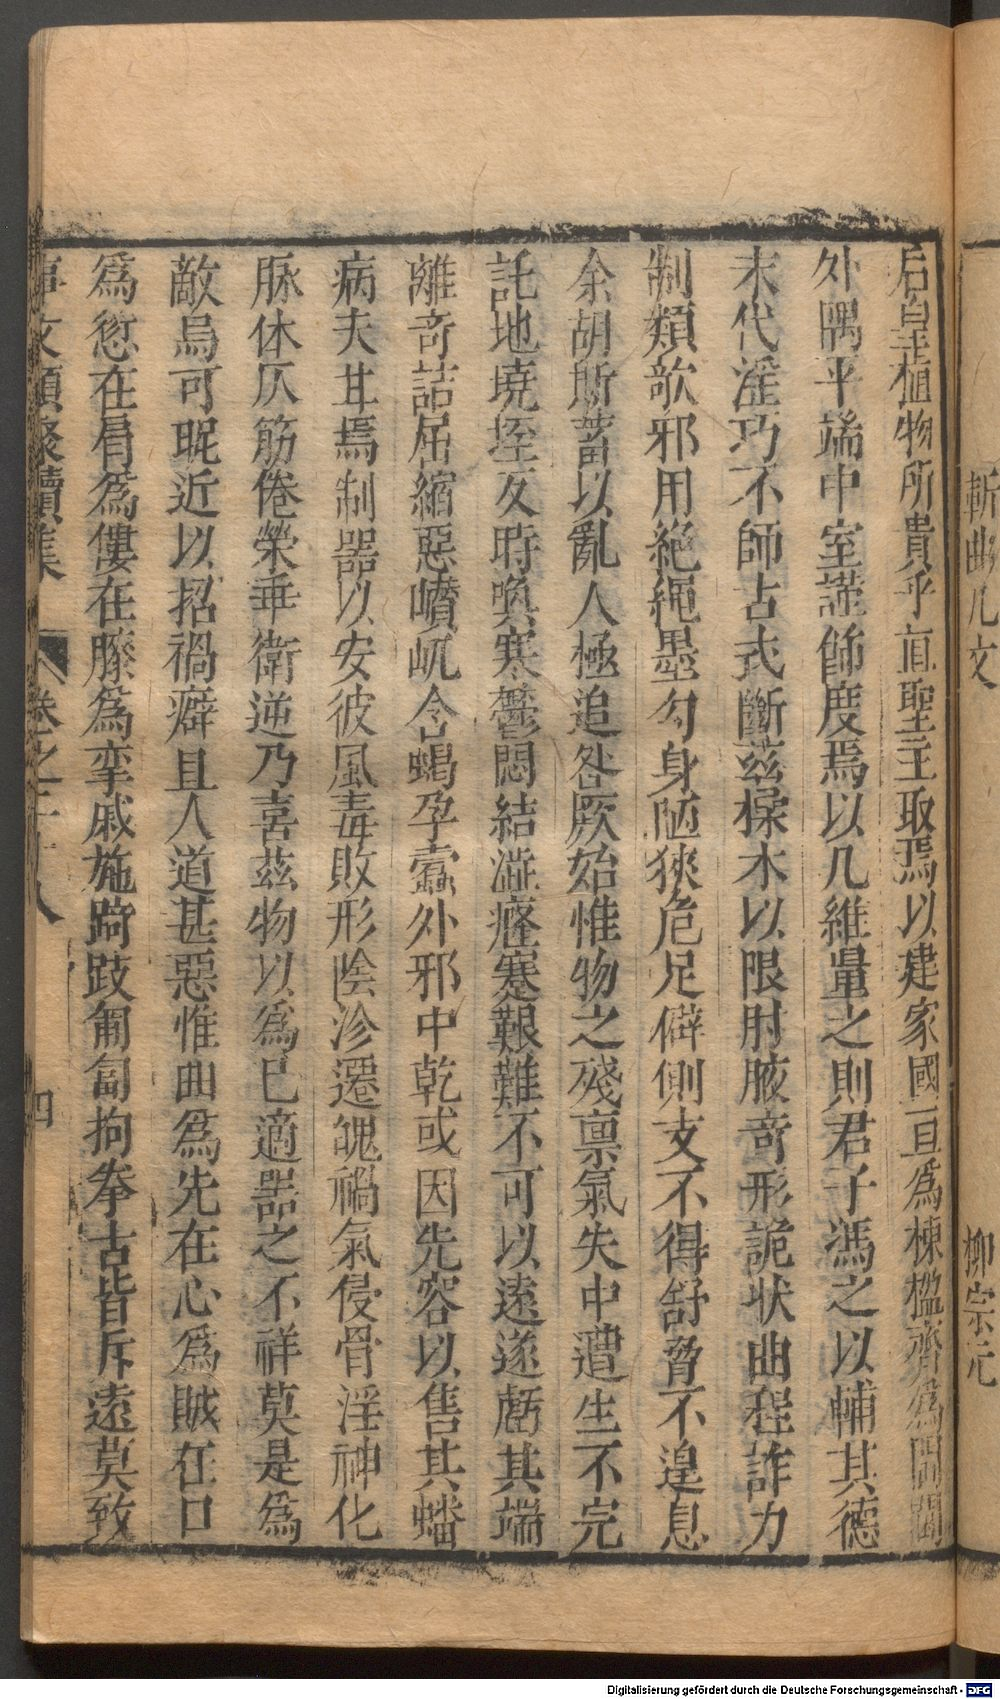 斬曲几文　柳宗元
后皇植物所貴乎直聖主取焉以建家國亘爲棟楹齊爲閫閾
外隅平端中室謹飾度焉以几維量之則君子馮之以輔其德
末代淫巧不師古式斷茲楺木以限肘腋奇形詭狀曲程詐力
制類欹邪用絕繩墨勾身陋狹危足僻側支不得舒脅不遑息
余胡斯蓄以亂人極追咎厥始惟物之殘禀氣失中遭生不完
託地墝垤反時燠寒鬱悶結澁癃蹇艱難不可以遠遂虧其端
離奇詰屈縮惡巑岏含蝎孕蠹外邪中乾或因先容以售其蟠
病夫甘焉制器以安彼風毒敗形陰沴遷魄禍氣侵骨淫神化
脉体仄筋倦榮乖衛逆乃喜茲物以爲己適器之不祥莫是爲
敵烏可昵近以招禍癖且人道甚惡惟曲爲先在心爲賊在口
爲愆在肩爲僂在膝爲攣戚施踦跂匍匐拘拳古皆斥遠莫致
事文類聚續集　卷之二十八　四
Digitalisierung gefördert durch die Deutsche Forschungsgemeinschaft - DFG